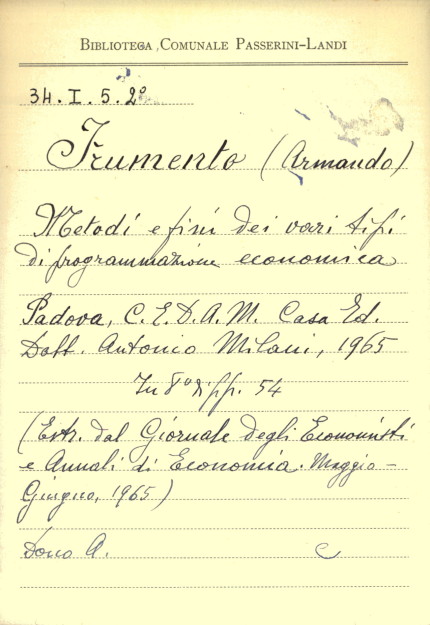 BIBLIOTECA COMUNALE PASSERINI-LANDI
34. I. 5. 2º
Frumento (Armando)
Metodi e fini dei vari tipi
di programmazione economica
Padova, C.E.D.A.M. Casa Ed.
Dott. Antonio Milani, 1965
In 8º di pp. 54
(Estr. dal Giornale degli Economisti
e Annali di Economia. Maggio-
Giugno, 1965)
Dono A. C